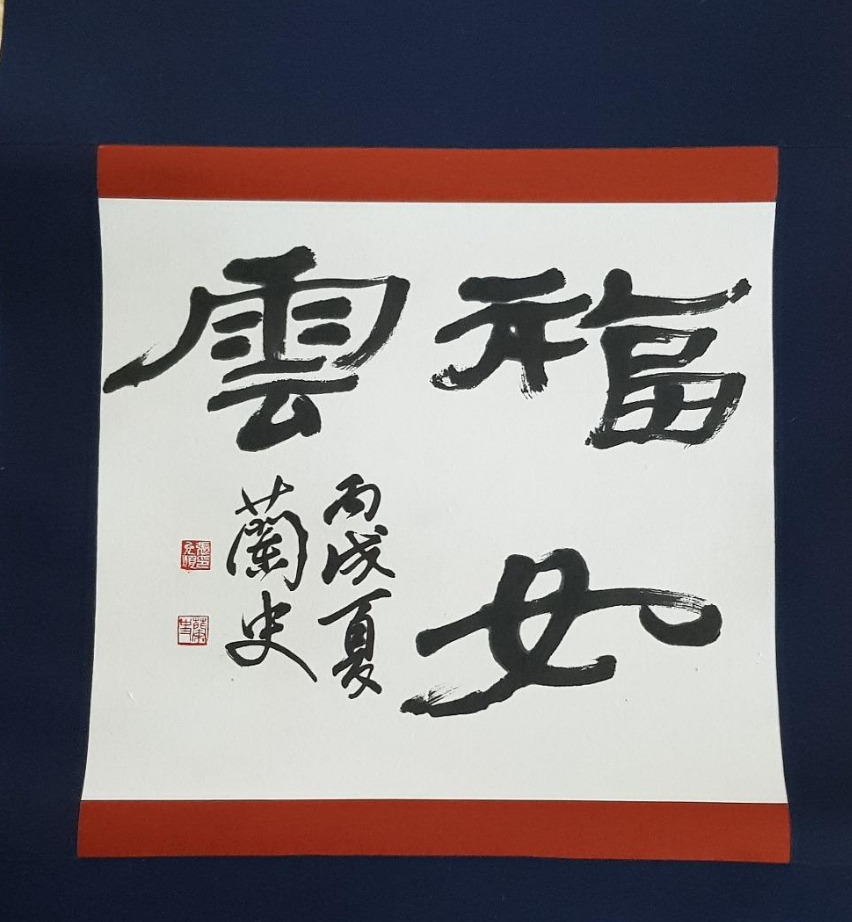 福如
雲
丙戌夏
蘭史